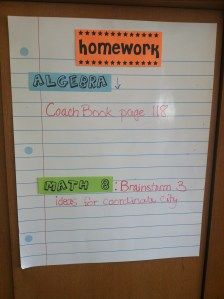 HOMEWORK
ALGEBRA ↓
Coach Book page 118
MATH 8 : Brainstorm 3
ideas for coordinate city